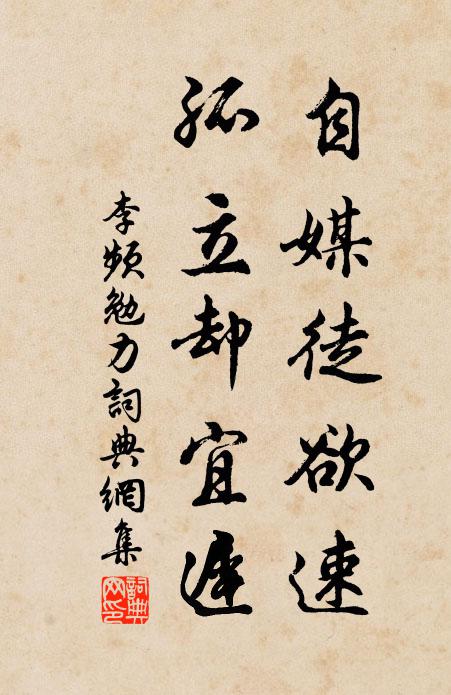 自媒徒欲速
孤立却宜遲
李頻勉力詞典網集
詞典网印